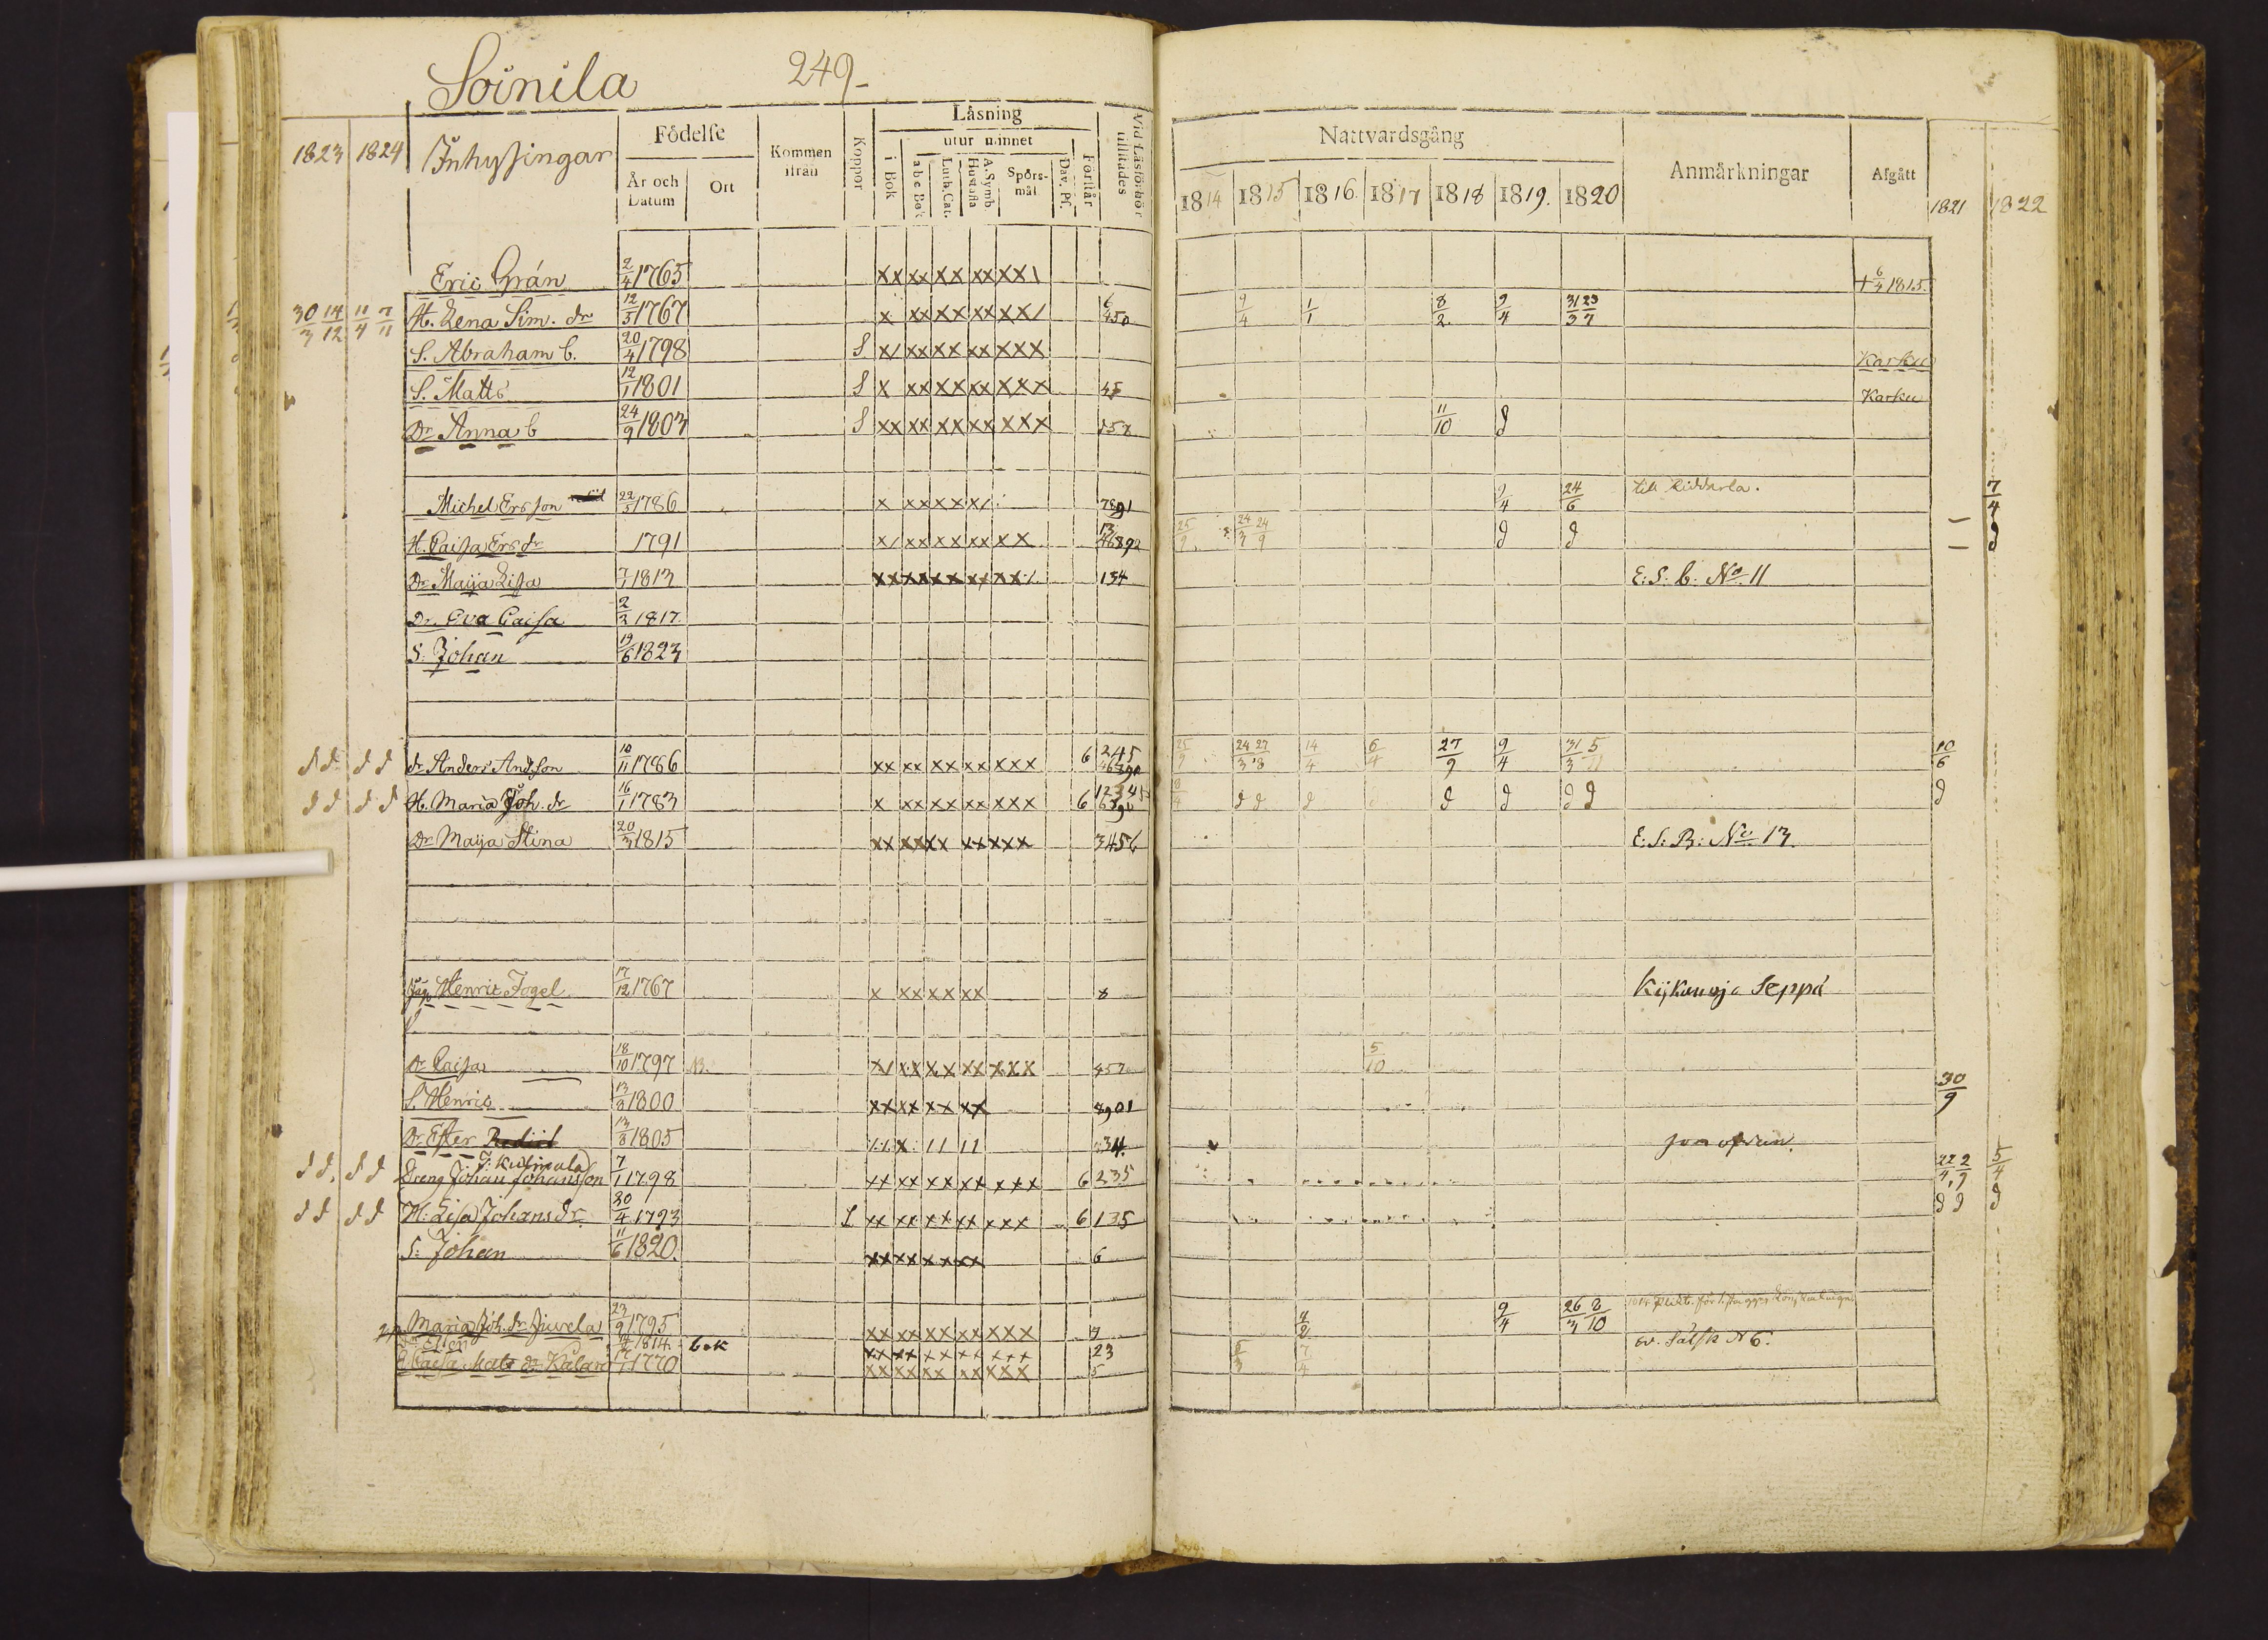 Soinila 249
1823 1824 Inhysingar Födelse År och Datum Ort Kommen ifrån Koppor Låsning utur minnet i Bok a b c Bok Luth. Cat. A. Symb. Hustafla Spörsmål Dav. Ps. Förstår Vid Läsförhör tillstädes
Nattvardsgång 1814 1815 1816 1817 1818 1819 1820 Anmärkningar Afgått 1821 1822
Eric Grån 2/4 1765 xx xx xx xx xx1 + 6/3 1815.
30/3 14/12 11/4 7/11 H. Lena Sim. dr 12/5 1767 x xx xx xx xx/ 9/4 1/1 8/2 9/4 31/3 23/7
S. Abraham b. 20/4 1798 S x/ xx xx xx xxx Karku
S. Matts 12/1 1801 S x xx xx xx xxx 45 Karku
Dr Anna b 24/9 1803 S xx xx xx xx xxx 11/10 d
Michel Ersson 22/5 1786 x xx xx x/ 7891 9/4 24/6 till Riddarla. 7/4
H. Caisa Ers dr 1791 x/ xx xx xx xx 25/9 24/3 24/9 d d d
Dr Maija Lisa 7/1 1813 xx xx xx xx xx 134 E: S: b: No 11
Dr. Eva Caisa 2/2 1817
S: Johan 19/6 1823
d d d d dr Anders Andsson 10/11 1786 xx xx xx xx xxx 6 245 25/9 24/3 27/8 14/4 6/4 27/9 9/4 31/3 5/11 10/6
d d d d H. Maria Joh. dr 16/1 1783 x xx xx xx xxx 6 12345 d d d d d d d d d
Dr Maija Stina 20/3 1815 xx xx xx xx xxx 3456 E: S: B: No 13.
Henric Fogel 17/12 1767 x xx xx xx 8 Seppä
Dr Caisa 18/10 1797 x/ xx xx xx xxx 457 5/10
S. Henric 13/8 1800 xx xx xx xx 8901 30/9
Dr Ester 13/8 1805 11 11 34
d d d d Dreng Johan Johansson 7/1 1798 xx xx xx xx xxx 6 235 22/4 2/9 5/4
d d d d H: Lisa Johans dr. 20/4 1793 xx xx xx xx xxx 6 135 d d d
S: Johan 11/6 1820. xx xx xx xx 6
Maria Joh. dr Juvela 23/9 1795 xx xx xx xx xxx 9/4 26/3 8/10
Dr Ester 1814 xx xx xx xx xxx 23 No 6.
Caisa Mats dr 1770 xx xx xx xx xxx 5